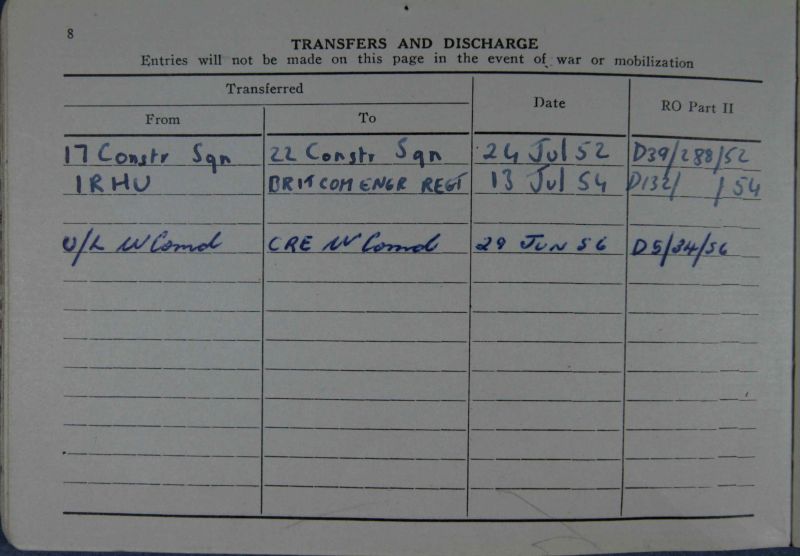 8
TRANSFERS AND DISCHARGE
Entries will not be made on this page in the event of war or mobilization
Transferred Date RO Part II
From To
17 Constr Sqn 22 Constr Sqn 24 Jul 52 D39/288/52
1RHU BRITCOM ENGR REGT 13 Jul 54 D132/ /54
W Comd CRE W Comd 29 JUN 56 D5/34/56